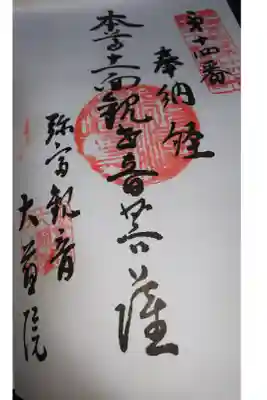 第十四番
奉納経
本尊十一面観世音菩薩
弥富観音